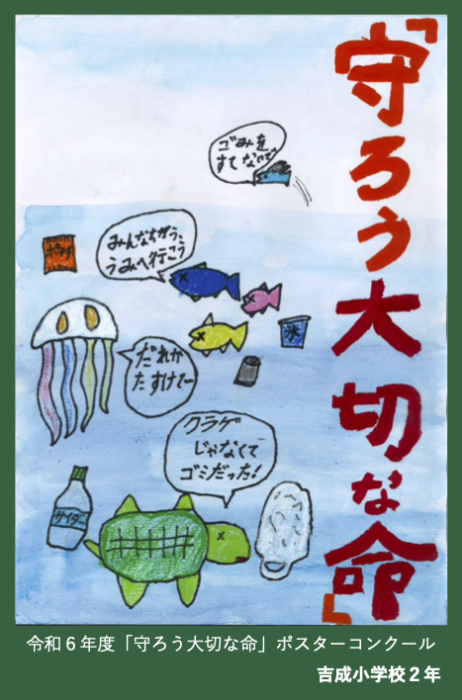 「守ろう大切な命」
ゴみを
すてないで
みんなちがう、
うみへ行こう
ポテチ
氷
だれか
たすけてー
クラゲ
じゃなくて
ゴミだった!
サイダー
令和6年度「守ろう大切な命」ポスターコンクール
吉成小学校2年